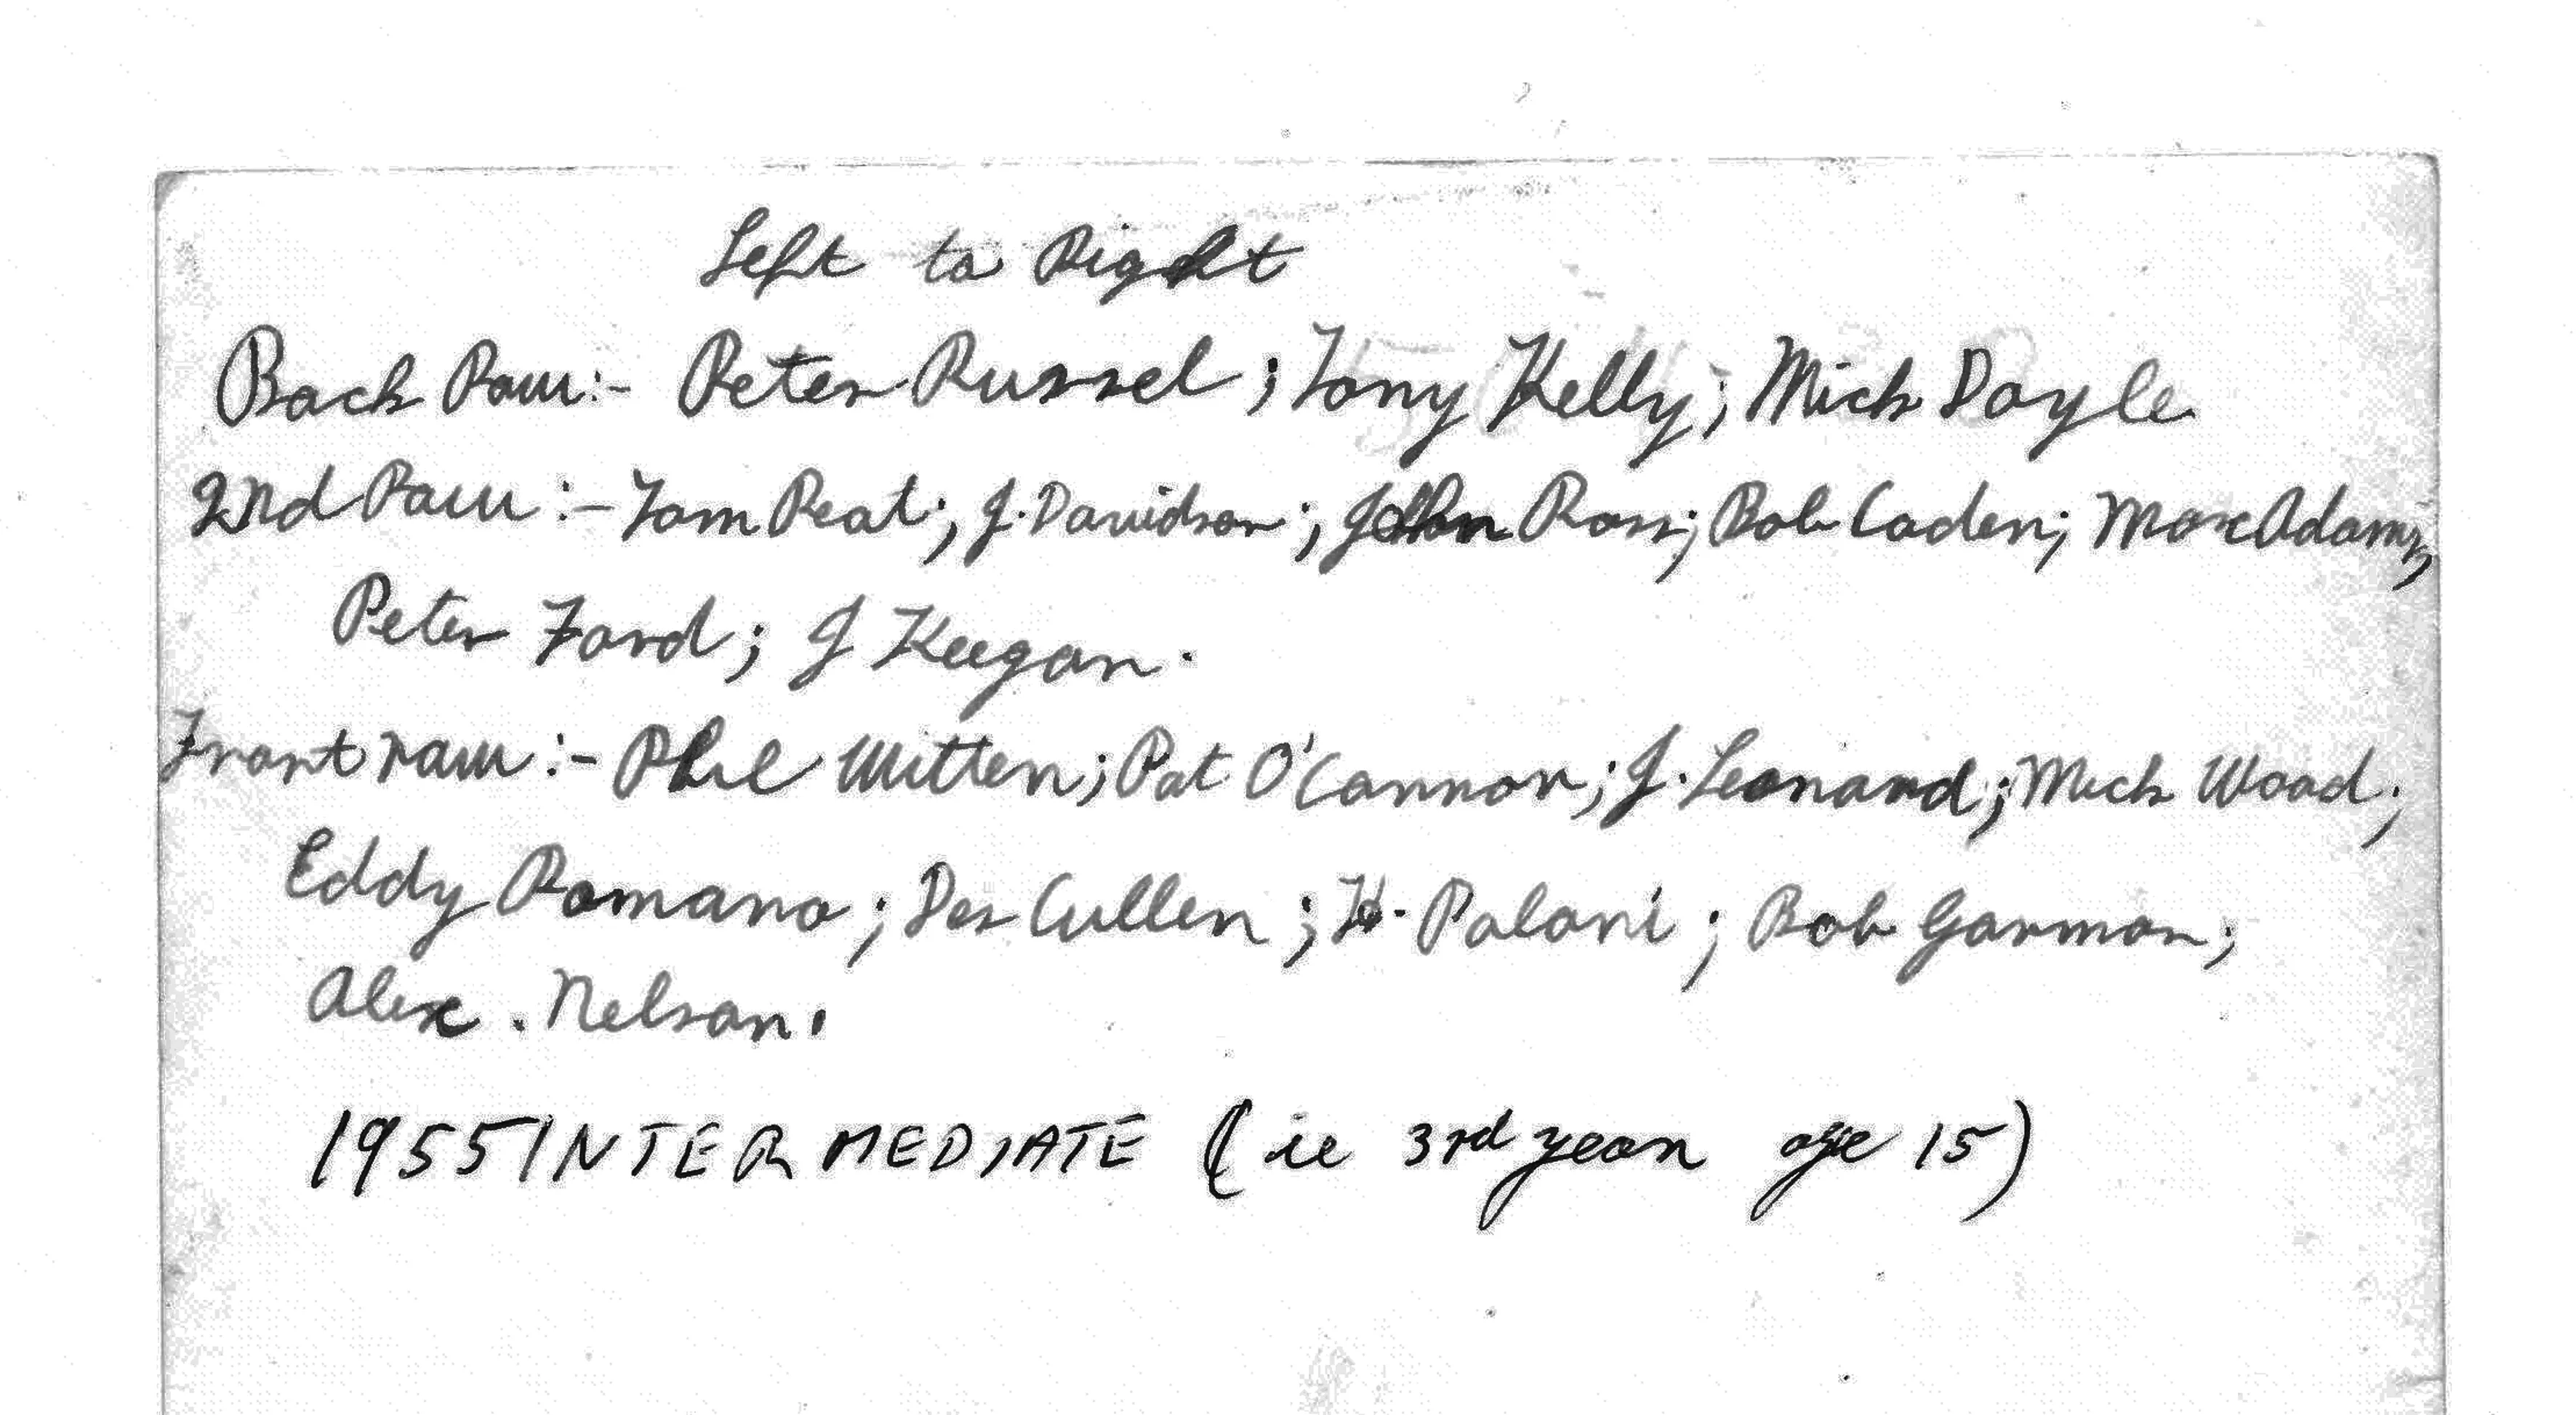 Left to Right
Back Row:- Peter Russel; Tony Kelly; Mick Doyle
2nd Row:- Tom Peat; J. Davidson; John Ross; Bob Caden; Max Adams,
Peter Ford; J Keegan.
Front row:- Phil Witten; Pat O'Connor; J. Leonard; Mick Wood;
Eddy Romano; Des Cullen; H. Polani; Bob Garmon;
Alex. Nelson.
1955 INTERMEDIATE (ie 3rd year age 15)